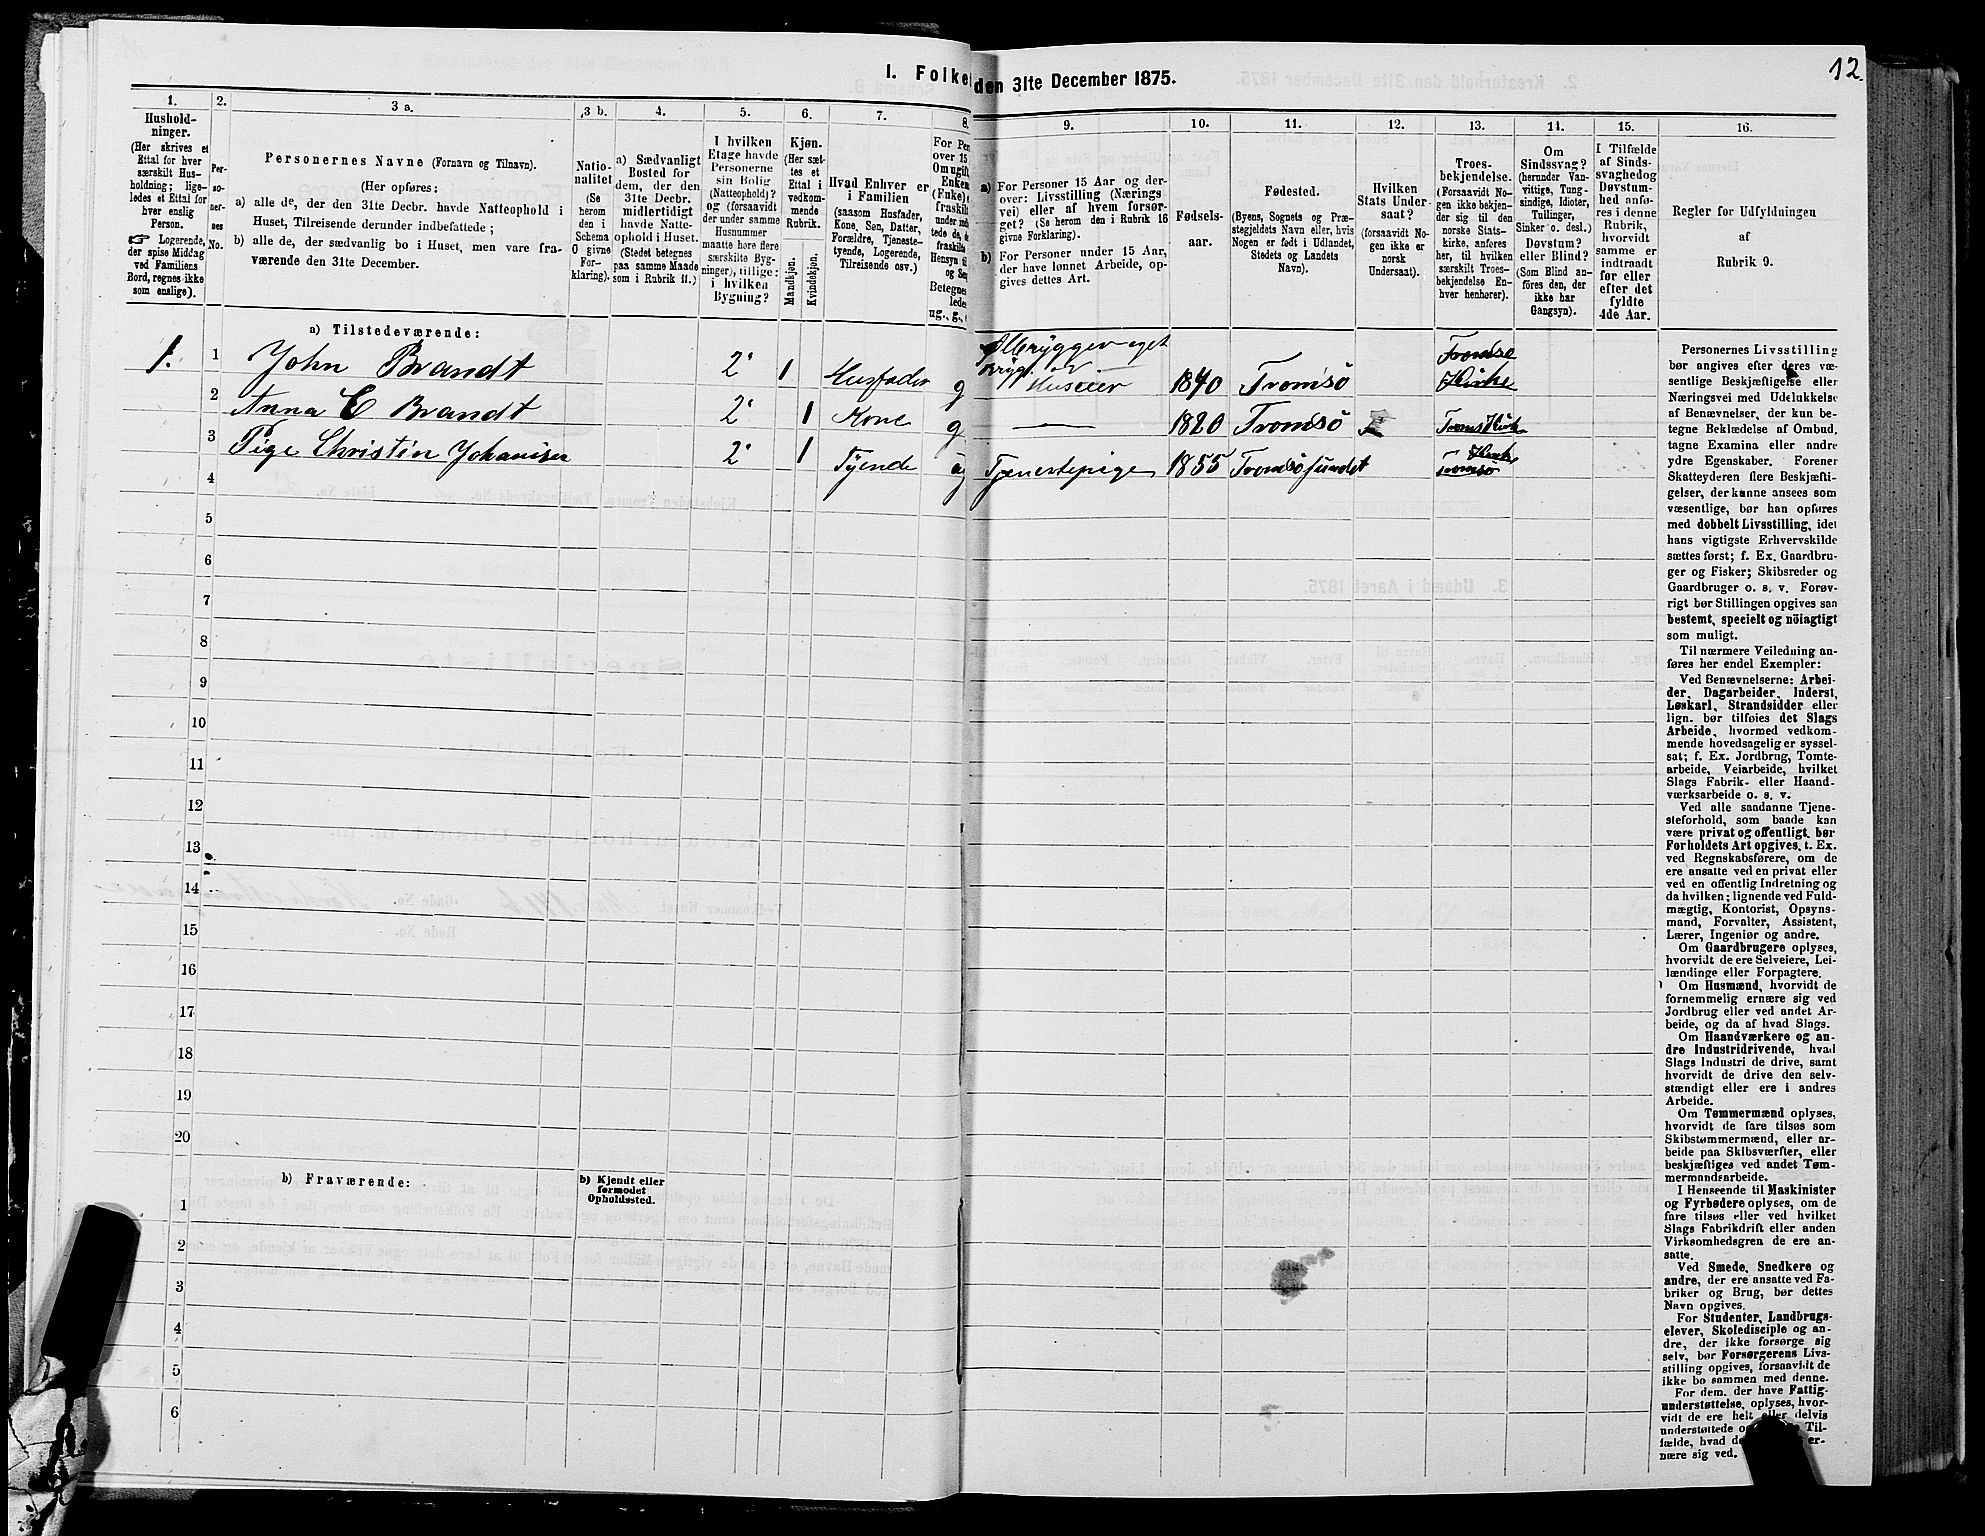 12.
I. Folke
den 31te December 1875.
1.
Hushold-
ninger.
(Her skrives et
Ettal for hver
særskilt Hus-
holdning; lige-
ledes et Ettal for
hver enslig
Person.
☞ Logerende,
der spise Middag
ved Familiens
Bord, regnes ikke
som enslige).
2.
Per-
so-
ner-
nes
No.
3 a.
Personernes Navne (Fornavn og Tilnavn).
(Her opføres:
a) alle de, der den 31te Decbr. havde Natteophold i
Huset, Tilreisende derunder indbefattede;
b) alle de, der sædvanlig bo i Huset, men vare fra-
værende den 31te December.
3 b.
Natio-
nalitet
(Se
herom
den i
Schema
O givne
For-
klaring).
4.
a) Sædvanligt
Bosted for
dem, der den
31te Decbr.
midlertidigt
havde Natte-
ophold i Huset.
(Stedet betegnes
paa samme Maade
som i Rubrik 11.)
5.
I hvilken
Etage havde
Personerne
sin Bolig
(Natteophold)?
og (forsaavidt
der under samme
Husnummer
maatte høre flere
særskilte Byg-
ninger), tillige:
i hvilken
Bygning?
6.
Kjøn.
(Her sæt-
tes et
Ettal i
vedkom-
mende
Rubrik.
Mandkjøn.
Kvindekjøn.
7.
Hvad Enhver er
i Familien
(saasom Husfader,
Kone, Søn, Datter,
Forældre, Tjeneste-
tyende, Logerende,
Tilreisende osv.).
8.
For Per
over 15
Om ugift
Enken
(Enke),
fraskilt
under mid
tede de, d
fraskilte
Hensyn til
og Se
Betegnes
lede
ug., g.,
9.
a) For Personer 15 Aar og der-
over: Livsstilling (Nærings-
vei) eller af hvem forsør-
get? (Se herom den i Rubrik 16
givne Forklaring).
b) For Personer under 15 Aar,
der have lønnet Arbeide, op-
gives dettes Art.
10.
Fødsels-
aar.
11.
Fødested.
(Byens, Sognets og Præ-
stegjeldets Navn eller, hvis
Nogen er født i Udlandet,
Stedets og Landets
Navn).
12.
Hvilken
Stats Under-
saat?
(forsaavidt No-
gen ikke er
norsk
Undersaat).
13.
Troes-
bekjendelse.
(Forsaavidt No-
gen ikke bekjen-
der sig til den
norske Stats-
kirke, anføres
her, til hvilken
særskilt Troes-
bekjendelse En-
hver henhører).
14.
Om
Sindssvag?
(herunder Van-
vittige, Tung-
sindige, Idioter,
Tullinger,
Sinker o. desl.)
Døvstum?
eller Blind?
(Som Blind an-
føres den, der
ikke har
Gangsyn).
15.
I Tilfælde
af Sinds-
svaghed og
Døvstum-
hed anfø-
res i denne
Rubrik,
hvorvidt
samme er
indtraadt
før eller
efter det
fyldte
4de Aar.
16.
Regler for Udfyldningen
af
Rubrik 9.
a) Tilstedeværende:
1. 1 John Brandt 2' 1 Husfader g Ølbrygger eget Bryg. Huseier 1840 Tromsö Tromsø Kirke
2 Anna C Brandt 2' 1 Kone g — 1820 Tromsö Troms Kirke
3 Pige Christin Johanisen 2' 1 Tyende ug Tjenestepige 1855 Tromsösundet Kirke Tromsø
4
5
6
7
8
9
10
11
12
13
14
15
16
17
18
19
20
b) Fraværende:
b) Kjendt eller
formodet
Opholdssted.
1
2
3
4
5
6
Personernes Livsstilling
bør angives efter deres væ-
sentlige Beskjæftigelse eller
Næringsvei med Udelukkelse
af Benævnelser, der kun be-
tegne Beklædelse af Ombud,
tagne Examina eller andre
ydre Egenskaber. Forener
Skatteyderen flere Beskjæfti-
gelser, der kunne ansees som
væsentlige, bør han opføres
med dobbelt Livsstilling, idet
hans vigtigste Erhvervskilde
sættes først; f. Ex. Gaardbru-
ger og Fisker; Skibsreder og
Gaardbruger o. s. v. Forøv-
rigt bør Stillingen opgives saa
bestemt, specielt og nöiagtigt
som muligt.
Til nærmere Veiledning an-
føres her endel Exempler:
Ved Benævnelserne: Arbei-
der, Dagarbeider, Inderst,
Løskarl, Strandsidder eller
lign. bør tilføies det Slags
Arbeide, hvormed vedkom-
mende hovedsagelig er syssel-
sat; f. Ex. Jordbrug, Tomte-
arbeide, Veiarbeide, hvilket
Slags Fabrik- eller Haand-
værksarbeide o. s. v.
Ved alle saadanne Tjene-
steforhold, som baade kan
være privat og offentligt, bør
Forholdets Art opgives, f. Ex.
ved Regnskabsførere, om de
ere ansatte ved en privat eller
ved en offentlig Indretning og
da hvilken; lignende ved Fuld-
mægtig, Kontorist, Opsyns-
mand, Forvalter, Assistent,
Lærer, Ingeniør og andre.
Om Gaardbrugere oplyses,
hvorvidt de ere Selveiere, Lei-
lændinge eller Forpagtere.
Om Husmænd, hvorvidt de
fornemmelig ernære sig ved
Jordbrug eller ved andet Ar-
beide, og da af hvad Slags.
Om Haandværkere og an-
dre Industridrivende, hvad
Slags Industri de drive, samt
hvorvidt de drive den selv-
stændigt eller ere i andres
Arbeide.
Om Tømmermænd oplyses,
hvorvidt de fare tilsøs som
Skibstømmermænd, eller ar-
beide paa Skibsværfter, eller
beskjæftiges ved andet Tøm-
mermandsarbeide.
I Henseende til Maskinister
og Fyrbødere oplyses, om de
fare tilsøs eller ved hvilket
Slags Fabrikdrift eller anden
Virksomhedsgren de ere an-
satte.
Ved Smede, Snedkere og
andre, der ere ansatte ved Fa-
briker og Brug, bør dettes
Navn opgives.
For Studenter, Landbrugs-
elever, Skoledisciple og an-
dre, der ikke forsørge sig
selv, bør Forsørgerens Livs-
stilling opgives, forsaavidt de
ikke bo sammen med denne.
For dem, der have Fattig-
understøttelse, oplyses, hvor-
vidt de ere helt eller delvis
understøttede Til-
fælde, hvad er-
nære sig ved.